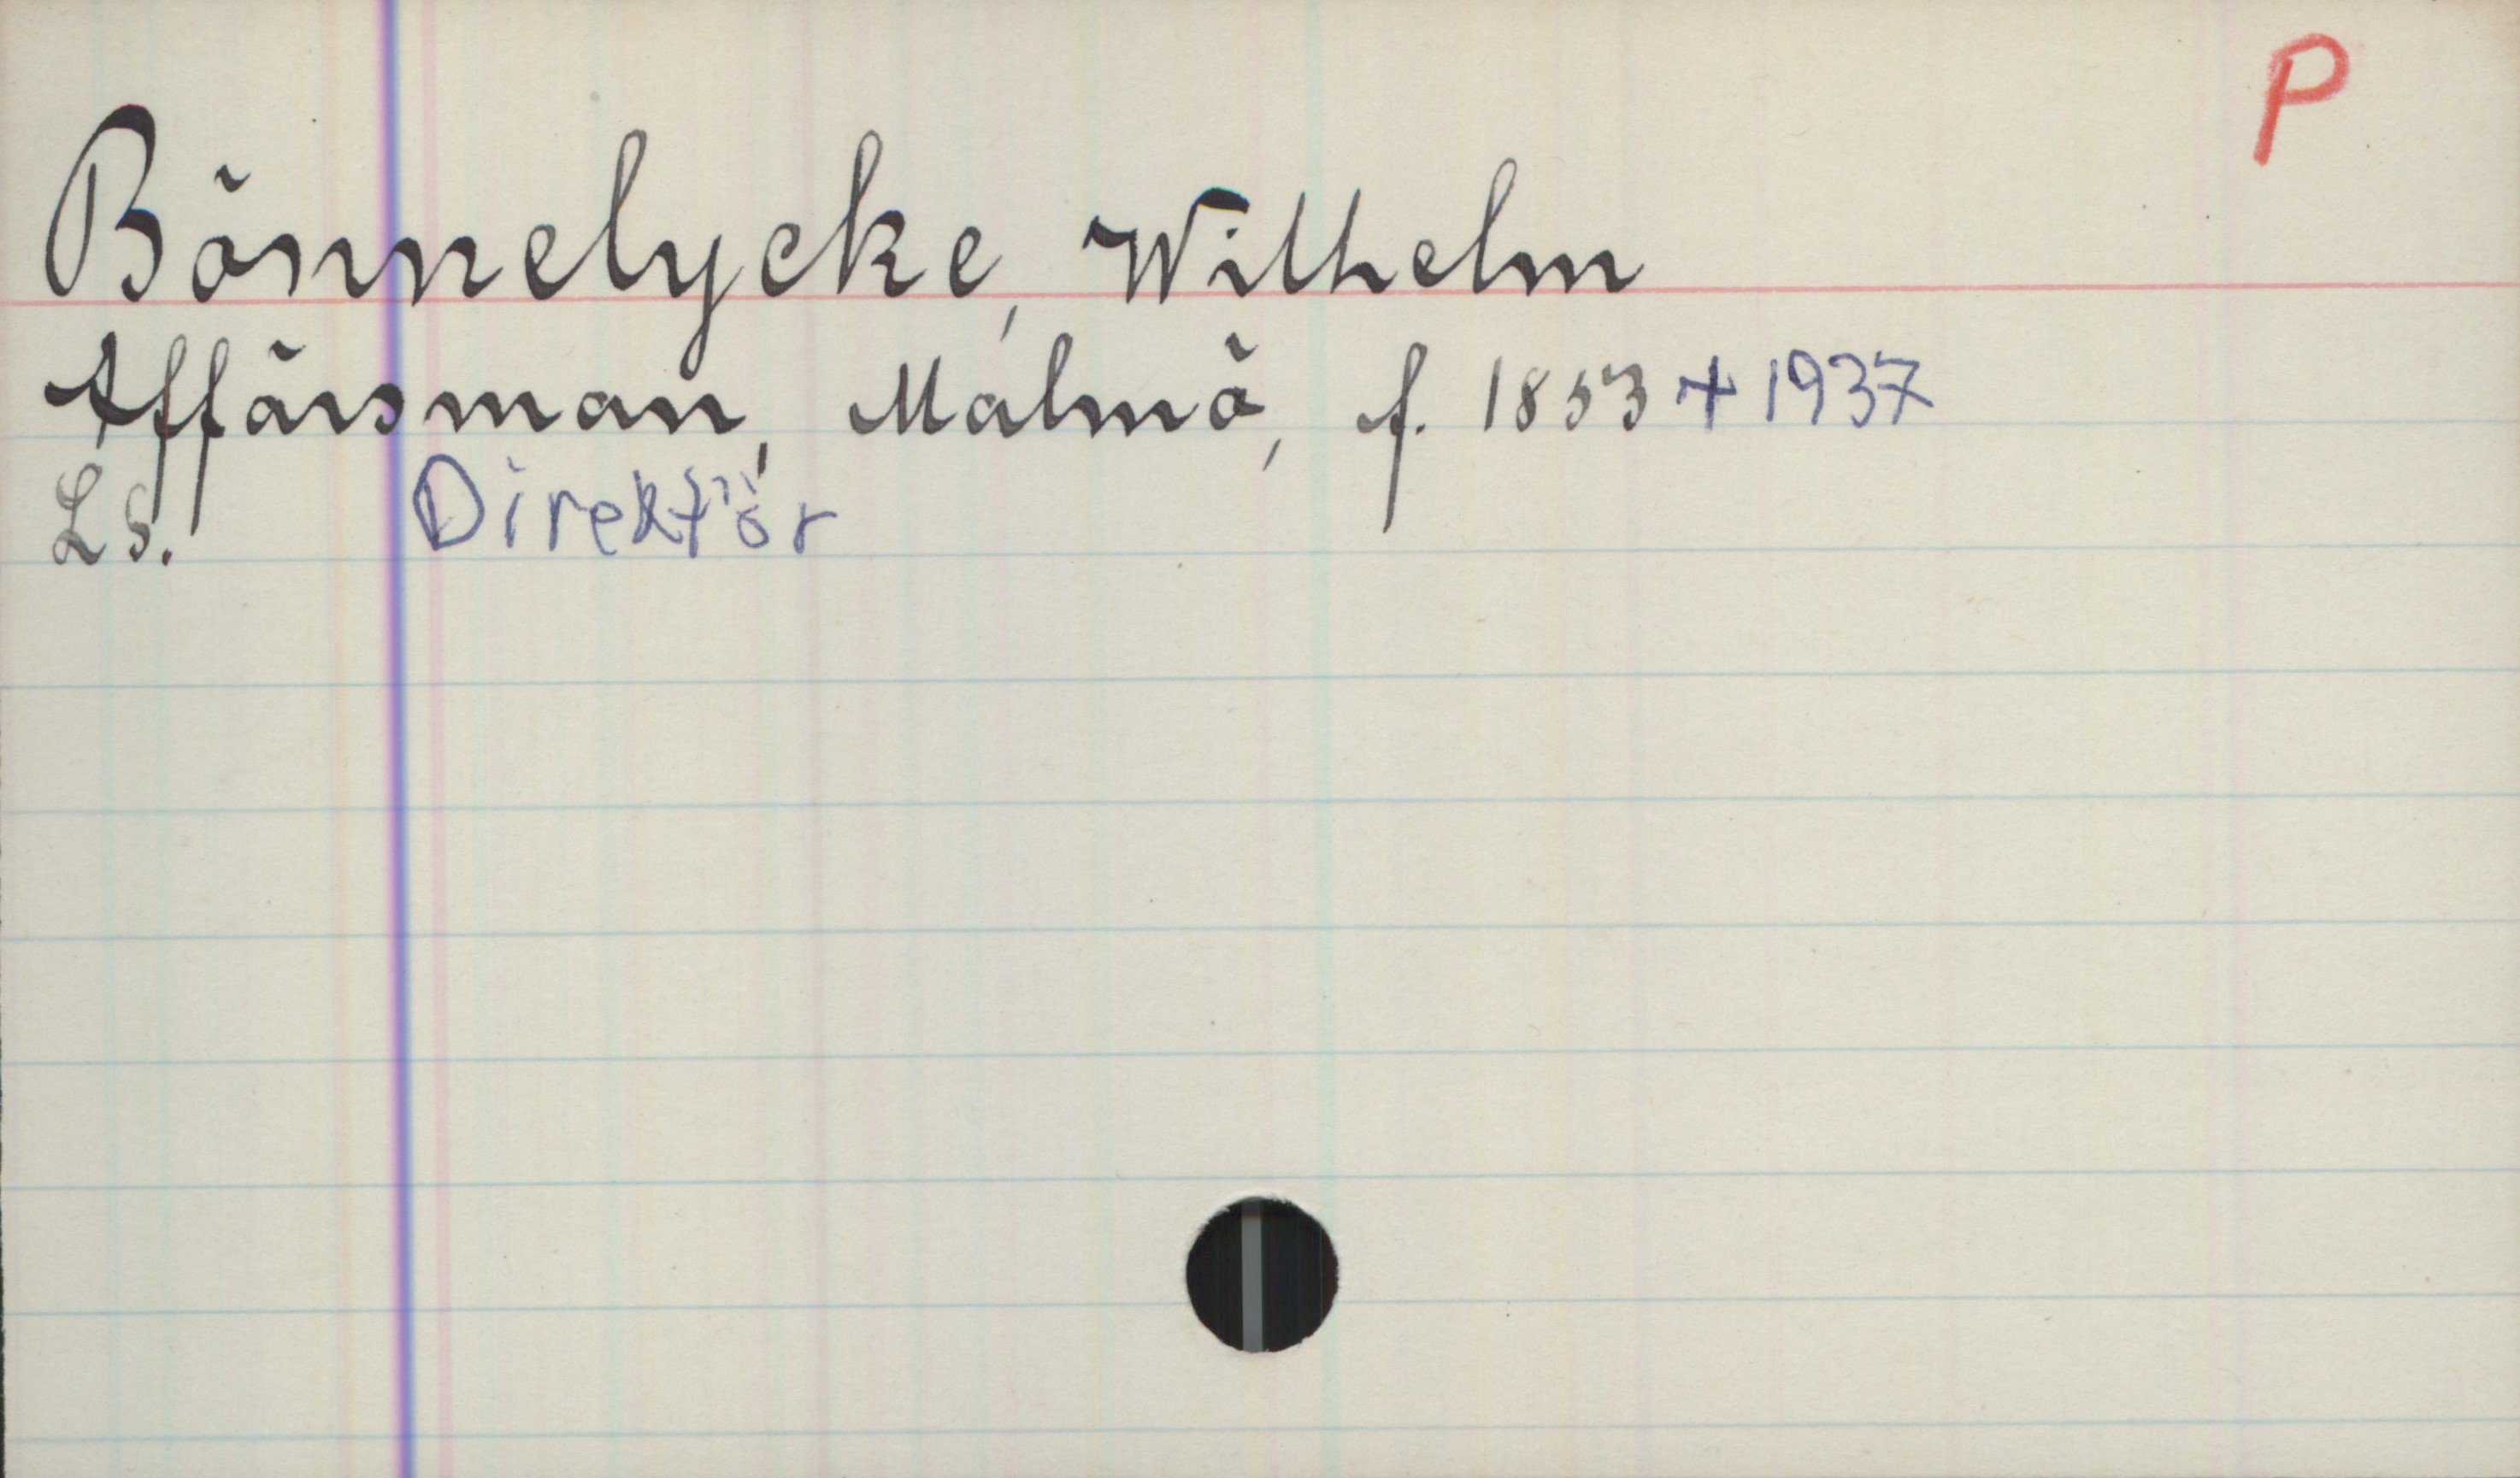 P
Bönnelycke, Wilhelm
Affärsman, Malmö, f. 1853 + 1937
LS. Direktör